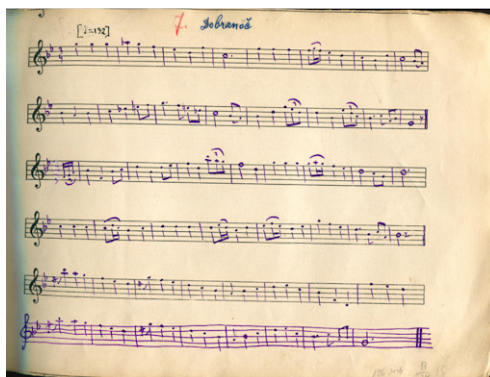 7. Dobranoć
[♩=132]